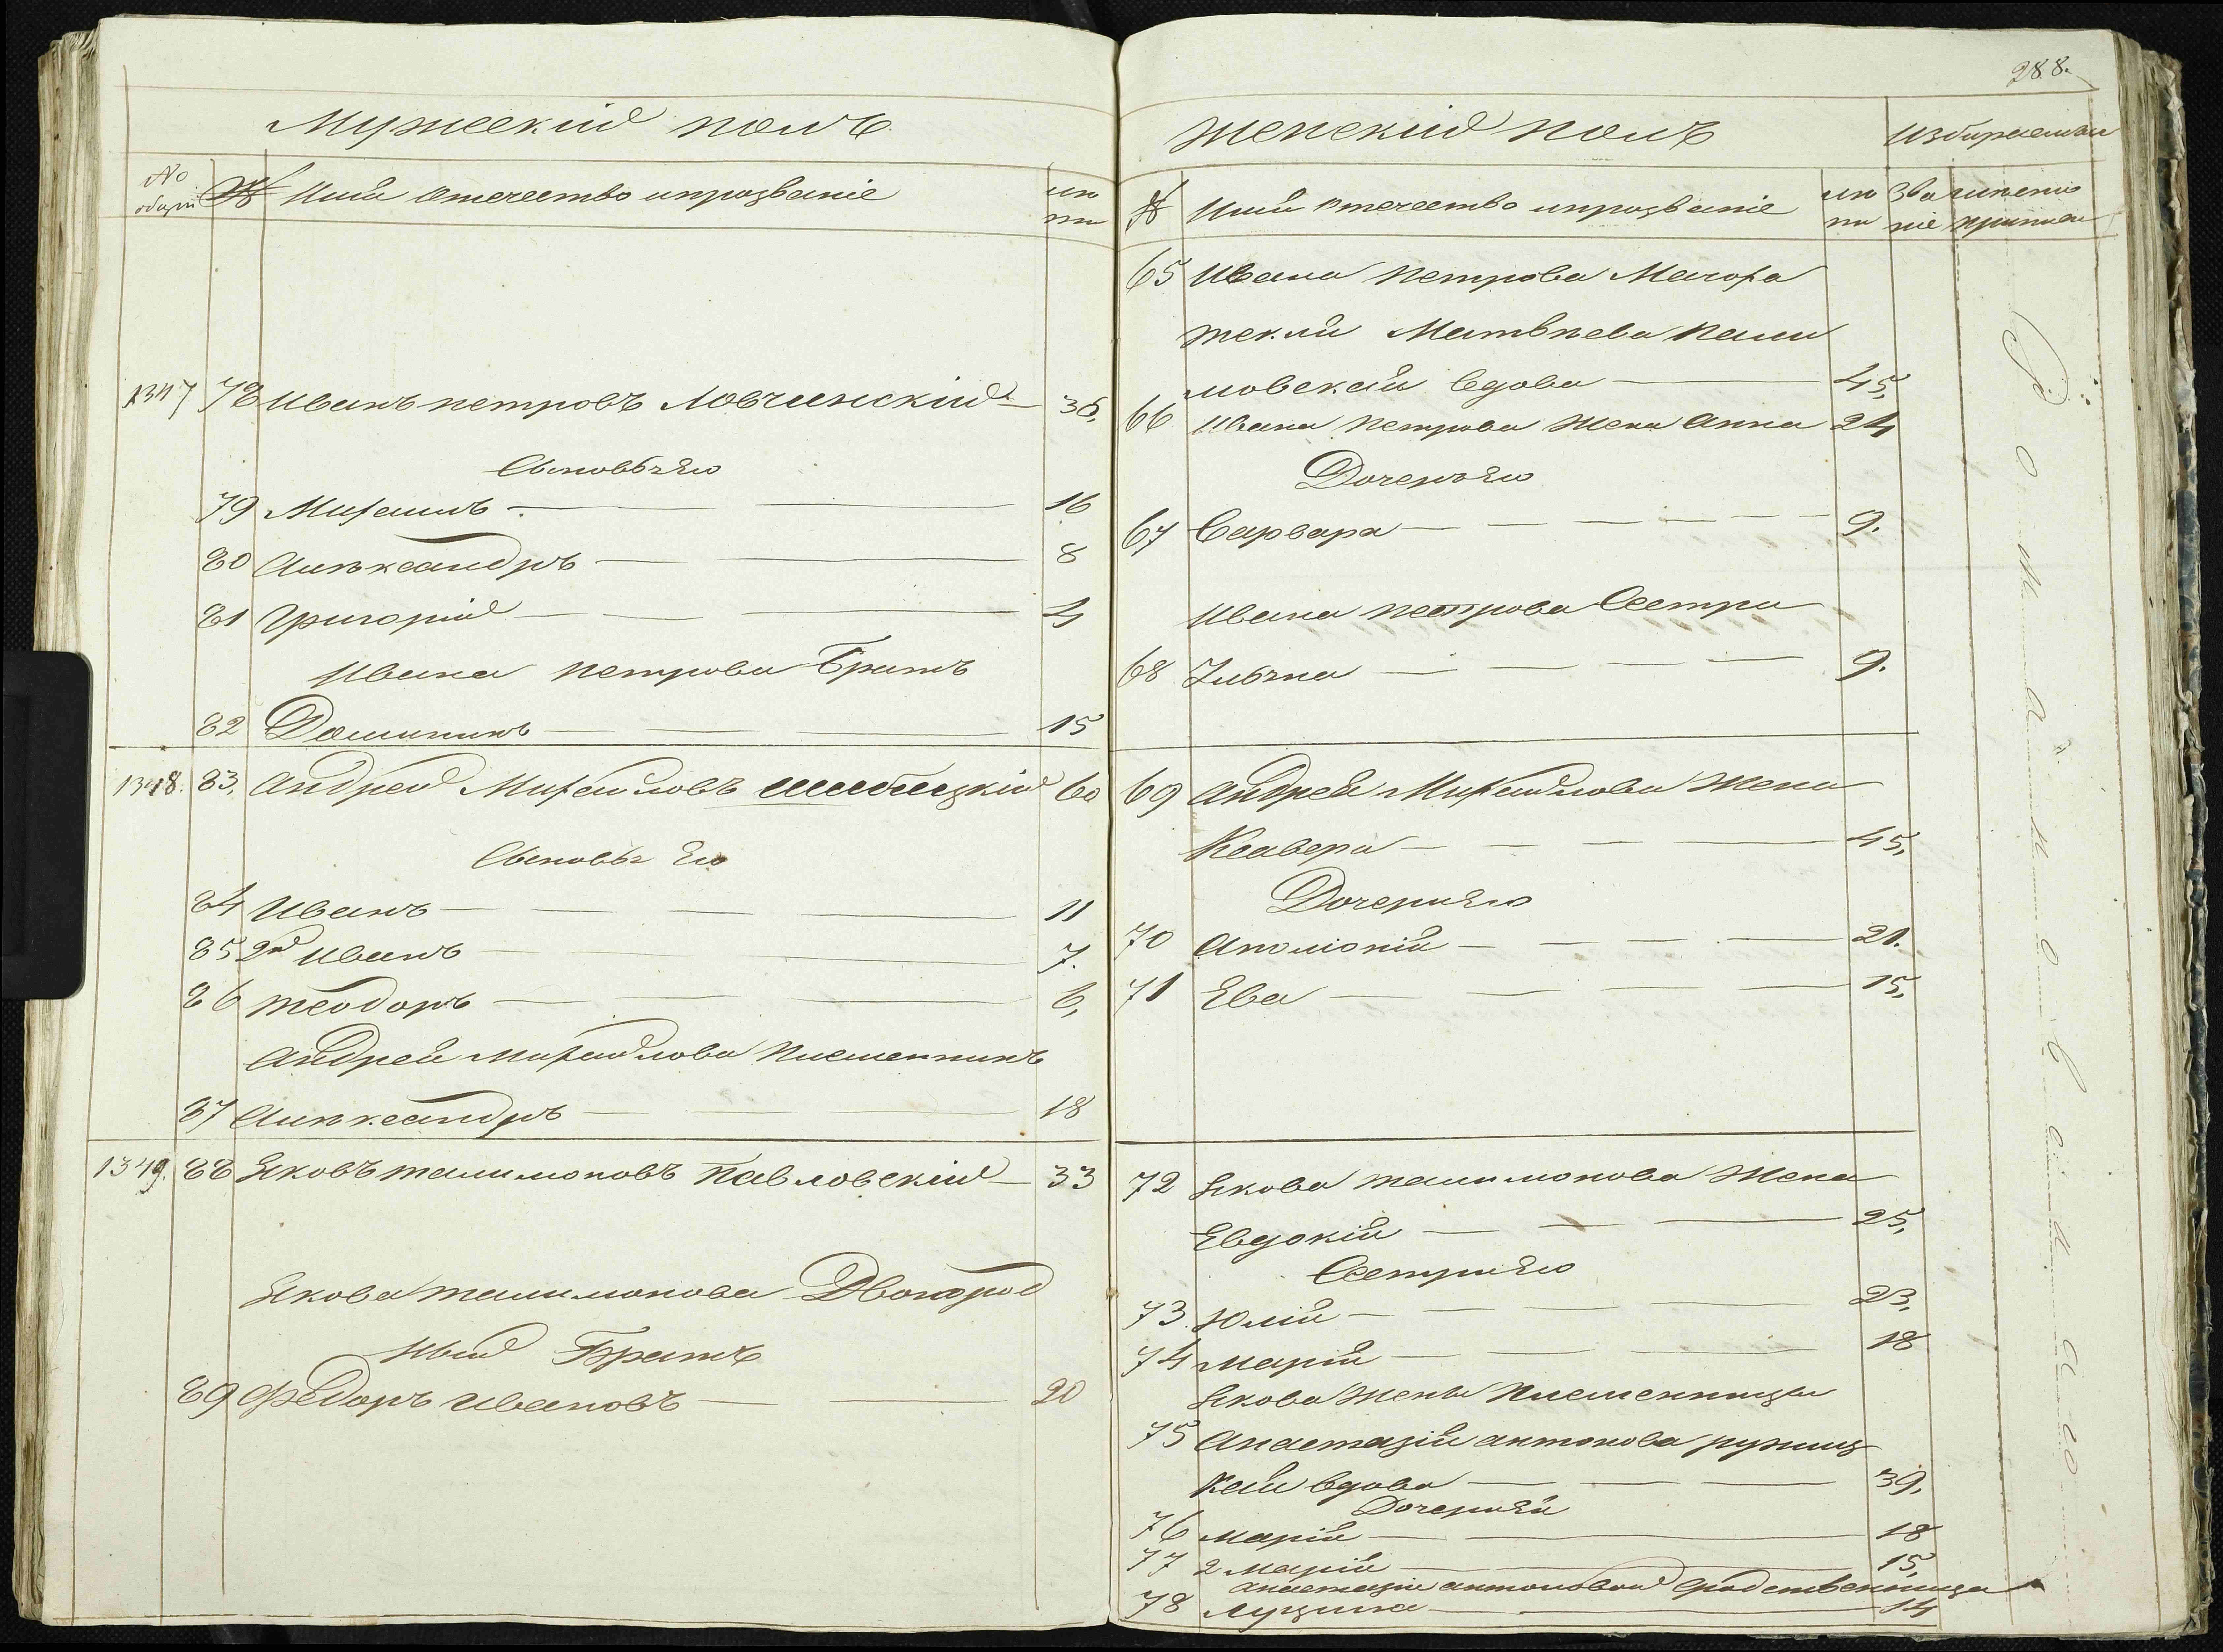 Мужескій полъ
No общій № Имя отечество ипрозваніе лѣ та
1347 78 Иванъ петровъ Ловчинскій 36,
Сыновья Его
79 Михаилъ 16
80 Александръ 8
81 Григорій 4
Ивана петрова Братъ
82 Доминикъ 15
1348. 83. Андрей Михайловъ 60
Сыновья Его
84 Иванъ 11
85 2й Иванъ 7.
86 Теодоръ 6,
Андрея Михайлова племенникъ
87 Александръ 18
1349. 88 Яковъ талимоновъ Павловскій 33
Якова талимонова Двоюрод
ный Братъ
89 Федоръ Ивановъ 20
288.
Женскій полъ
№ Имя отечество ипрозваніе лѣ та Зва ніе
65 Ивана петрова Мачоха
текля Матвѣева
мовская вдова 45,
66 Ивана петрова жена Анна 24
Дочерь Его
67 Варвара 9.
Ивана петрова Сестра
68 9.
69 Андрея Михайлова жена
Ксавера 45,
Дочери Его
70 Аполонія 21.
71 Ева 15,
72 Якова талимонова жена
Евдокія 25,
Сестры Его
73. Юлія 23,
74 Марія 18
Якова жены племенницы
75 Анастазія антонова ружиц
кая вдова 39,
Дочери Ея
76 Марія 18
77 2 Марія 15,
Анастазіи антоновой сродственница
78 Луцина 14
Романовскаго